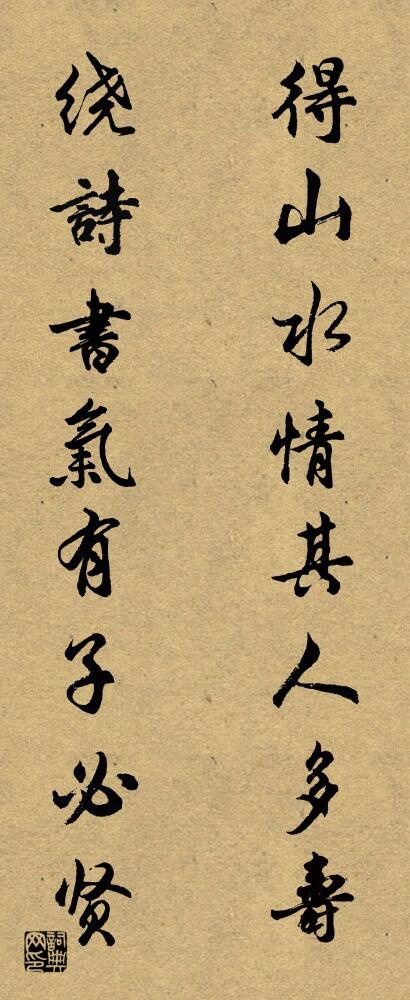 得山水情其人多壽
绕詩書氣有子必贤
詞典网印